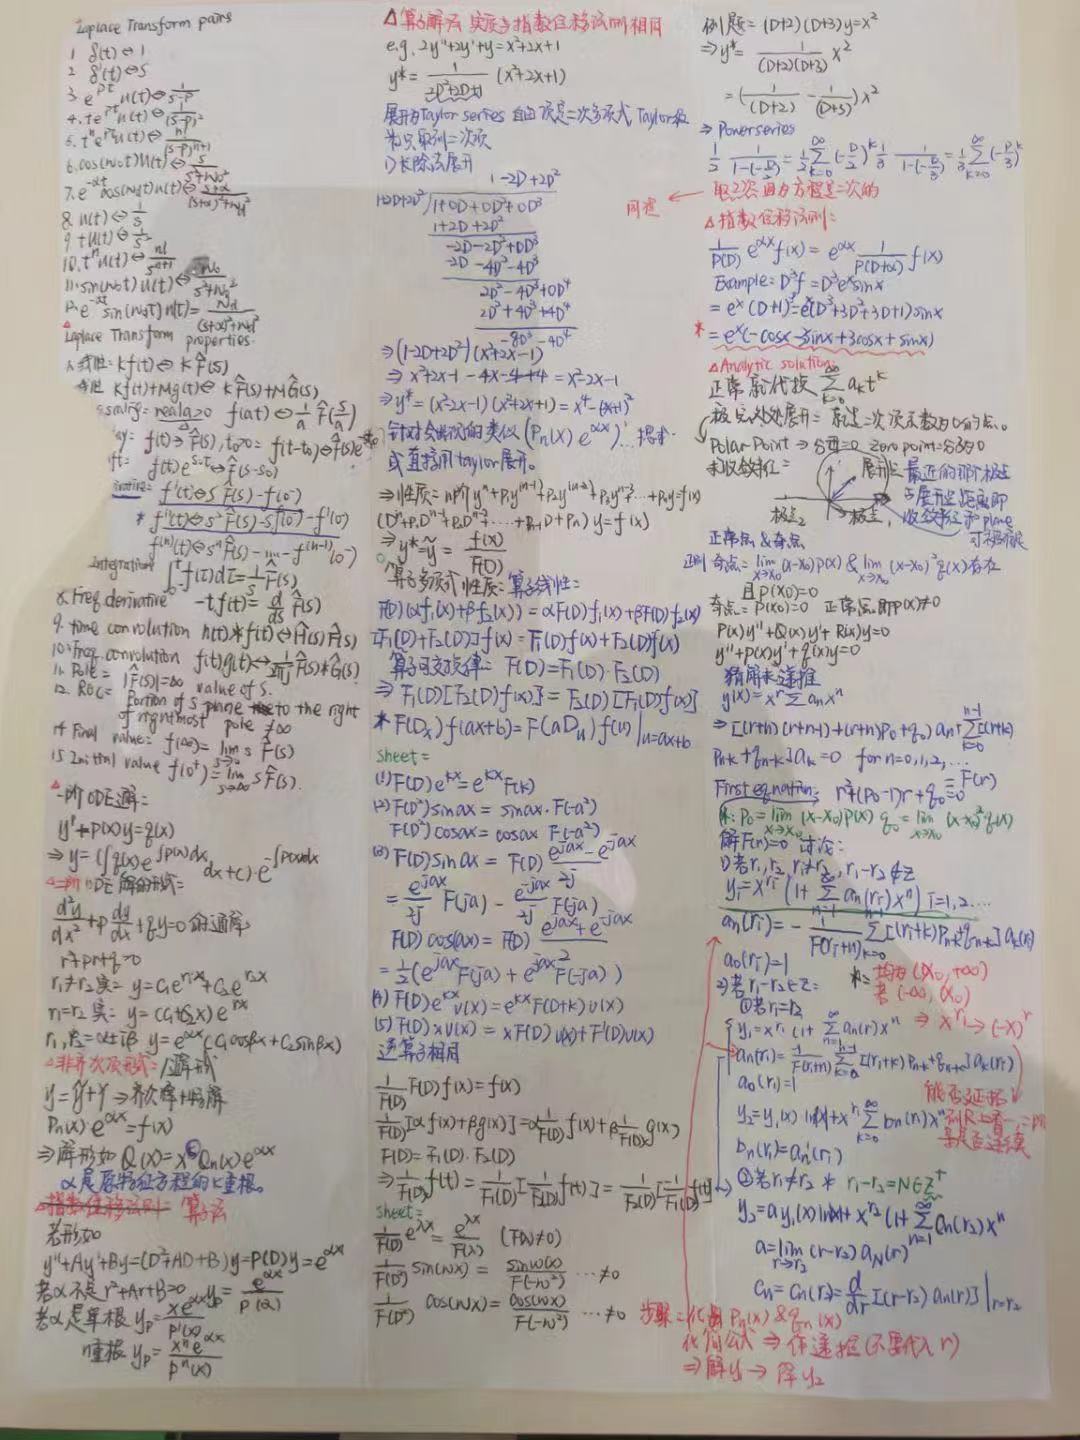 Laplace Transform pairs
1 δ(t)⇔1
2 δ'(t)⇔S
3. e^{pt}u(t)⇔1/(s-p)
4. te^{pt}u(t)⇔1/(s-p)²
5. tⁿe^{pt}u(t)⇔n!/(s-p)^{n+1}
6. cos(w₀t)u(t)⇔s/(s²+w₀²)
7. e^{-αt}cos(w₀t)u(t)⇔(s+α)/((s+α)²+w₀²)
8. u(t)⇔1/s
9. tu(t)⇔1/s²
10. tⁿu(t)⇔n!/s^{n+1}
11. sin(w₀t)u(t)⇔w₀/(s²+w₀²)
12. e^{-αt}sin(w₀t)u(t)=w₀/((s+α)²+w₀²)
Laplace Transform properties:
Kf(t)⇔KF̂(s)
Kf(t)+Mg(t)⇔KF̂(s)+MĜ(s)
scaling= real a>0 f(at)⇔1/a F̂(s/a)
f(t)⇒F̂(s), t₀>0= f(t-t₀)⇔F̂(s)
f(t)e^{s₀t}⇔F̂(s-s₀)
f'(t)⇔sF̂(s)-f(0⁻)
* f''(t)⇔s²F̂(s)-sf(0⁻)-f'(0)
f⁽ⁿ⁾(t)⇔sⁿF̂(s)-…-f⁽ⁿ⁻¹⁾(0⁻)
Integration ∫f(τ)dτ=1/s F̂(s)
8. Freq derivative -tf(t)=d/ds F̂(s)
9. time convolution h(t)*f(t)⇔Ĥ(s)F̂(s)
10. freq. convolution f(t)g(t)⇔1/2πj F̂(s)*Ĝ(s)
11. Pole= |F̂(s)|=∞ value of S.
12. ROC= Portion of S plane to the right
of rightmost pole ≠∞
14 Final value= f(∞)=lim s F̂(s)
15 Initial value f(0⁺)=lim sF̂(s).
一阶ODE通解=
y'+P(x)y=q(x)
⇒y=(∫q(x)e^{∫p(x)dx}dx+c)·e^{-∫p(x)dx}
二阶ODE解的形式=
d²y/dx²+p dy/dx+qy=0 的通解
r²+pr+q=0
r₁≠r₂实= y=C₁e^{r₁x}+C₂e^{r₂x}
r₁=r₂实= y=(C₁+C₂x)e^{rx}
r₁,r₂=α±iβ y=e^{αx}(C₁cosβx+C₂sinβx)
△非齐次项形式=/解形式
⇒齐次解+特解
Pn(x)·e^{αx}=f(x)
⇒解形如 Q(x)=x^k Qn(x)e^{αx}
α是原特征方程的k重根。
△指数位移法则= 算子法
若形如
y''+Ay'+By=(D²+AD+B)y=P(D)y=e^{αx}
若α不是r²+Ar+B=0 yp=e^{αx}/p(α)
若α是单根 yp=xe^{αx}/p'(x)
n重根 yp=xⁿe^{αx}/pⁿ(x)
△算子解法 实质与指数位移法则相同
e.g. 2y''+2y'+y=x²+2x+1
y*=1/(2D²+2D+1) (x²+2x+1)
展开为Taylor series
Taylor
为只取到二次项
1) 长除法展开
1-2D+2D²
1+2D+2D² √1+0D+0D²+0D³
1+2D+2D²
-2D-2D²+0D³
-2D-4D²-4D³
2D²-4D³+0D⁴
2D²+4D³+4D⁴
-8D³-4D⁴
⇒(1-2D+2D²)(x²+2x-1)
⇒x²+2x-1-4x-4+4=x²-2x-1
⇒y*=(x²-2x-1)(x²+2x+1)=x⁴-(x+1)²
类似(Pn(x)e^{αx})
或直接用taylor展开。
⇒性质= n阶yⁿ+P₁y⁽ⁿ⁻¹⁾+P₂y⁽ⁿ⁻²⁾+P₃yⁿ⁻³…+Pny=f(x)
(Dⁿ+P₁Dⁿ⁻¹+P₂Dⁿ⁻²+……+Pn-1D+Pn)y=f(x)
⇒y*=ỹ=f(x)/F(D)
算子多项式性质=算子线性=
F(D)(αf₁(x)+βf₂(x))=αF(D)f₁(x)+βF(D)f₂(x)
[F₁(D)+F₂(D)]f(x)=F₁(D)f(x)+F₂(D)f(x)
算子可交换律= F(D)=F₁(D)·F₂(D)
⇒F₁(D)[F₂(D)f(x)]=F₂(D)[F₁(D)f(x)]
* F(Dx)f(ax+b)=F(aDu)f(u)|u=ax+b
sheet=
(1)F(D)e^{kx}=e^{kx}F(k)
(2)F(D²)sinax=sinax·F(-a²)
F(D²)cosax=cosax F(-a²)
(3) F(D)sinax=F(D) (e^{jax}-e^{-jax})/2j
=e^{jax}/2j F(ja)-e^{-jax}/2j F(-ja)
F(D)cos(ax)=F(D) (e^{jax}+e^{-jax})/2
=1/2(e^{jax}F(ja)+e^{-jax}F(-ja))
(4) F(D)e^{kx}v(x)=e^{kx}F(D+k)v(x)
(5)F(D)xv(x)=xF(D)v(x)+F'(D)v(x)
逆算子相同
1/F(D) F(D)f(x)=f(x)
1/F(D)[αf(x)+βg(x)]=α1/F(D) f(x)+β1/F(D) g(x)
F(D)=F₁(D)·F₂(D)
⇒1/F(D) f(t)=1/F₁(D)[1/F₂(D) f(t)]=1/F₂(D)[1/F₁(D) f(t)]
sheet=
1/F(D) e^{λx}=e^{λx}/F(λ) (F(λ)≠0)
1/F(D²) sin(wx)=sinw(x)/F(-w²) …≠0
1/F(D²) cos(wx)=cos(wx)/F(-w²) …≠0
例题=(D+2)(D+3)y=x²
⇒y*=1/((D+2)(D+3)) x²
=(1/(D+2)-1/(D+3))x²
⇒Power series
1/2 1/(1-(-D/2))=1/2 Σ(-D/2)^k 1/3 1/(1-(-D/3))=1/3 Σ(-D/3)^k
同理 ← 取2次因为方程是二次的
△指数位移法则=
1/P(D) e^{αx}f(x)=e^{αx} 1/P(D+α) f(x)
Example= D³f=D³e^x sinx
=e^x(D+1)³=e^x(D³+3D²+3D+1)sinx
* =e^x(-cosx-3sinx+3cosx+sinx)
△Analytic solution:
正常就代换 Σ akt^k
Polar-Point⇒分母=0 zero point=分子=0
求收敛径=
展开点 最近的那个极点
与展开点距离即
极点₂ 极点₁
正常点&奇点
正则奇点=lim(x-x₀)p(x)&lim(x-x₀)²q(x)存在
且P(x₀)=0
奇点=P(x₀)=0 正常点即P(x)≠0
P(x)y''+Q(x)y'+R(x)y=0
y''+p(x)y'+q(x)y=0
猜解求递推
y(x)=x^r Σ anxⁿ
⇒[(r+n)(r+n-1)+(r+n)P₀+q₀)an+Σ[(r+k)
Pn-k+qn-k]ak=0 for n=0,1,2,…
First equation: r²+(P₀-1)r+q₀=0 =F(r)
P₀=lim(x-x₀)p(x) q₀=lim(x-x₀)²q(x)
解F(r)=0 讨论=
1)若r₁,r₂,r₁≠r₂,r₁-r₂∉Z
yi=x^{ri}(1+Σan(ri)xⁿ) i=1,2….
an(ri)=-1/F(ri+n) Σ[(ri+k)Pn-k+qn-k]ak(ri)
a₀(ri)=1
2)若r₁-r₂∈Z=
①若r₁=r₂
均为(x₀,+∞)
若(-∞,x₀)
⇒x^{r}→(-x)^r
y₁=x^{r₁}(1+Σan(r₁)xⁿ
an(r₁)=1/F(r₁+n) Σ[(r₁+k)Pn-k+qn-k]ak(r₁)
a₀(r₁)=1
y₂=y₁(x)ln|x|+x^{r₁}Σbn(r₁)xⁿ
bn(r₁)=an'(r₁)
②若r₁≠r₂ * r₁-r₂=N∈Z⁺
y₂=ay₁(x)ln|x|+x^{r₂}(1+ΣCn(r₂)xⁿ
a=lim(r-r₂)aN(r)
Cn=Cn(r₂)=d/dr[(r-r₂)an(r)]|r=r₂
步骤=化出Pn(x)&qn(x)
化简公式⇒作递推(不要代入r)
⇒解y₁→解y₂